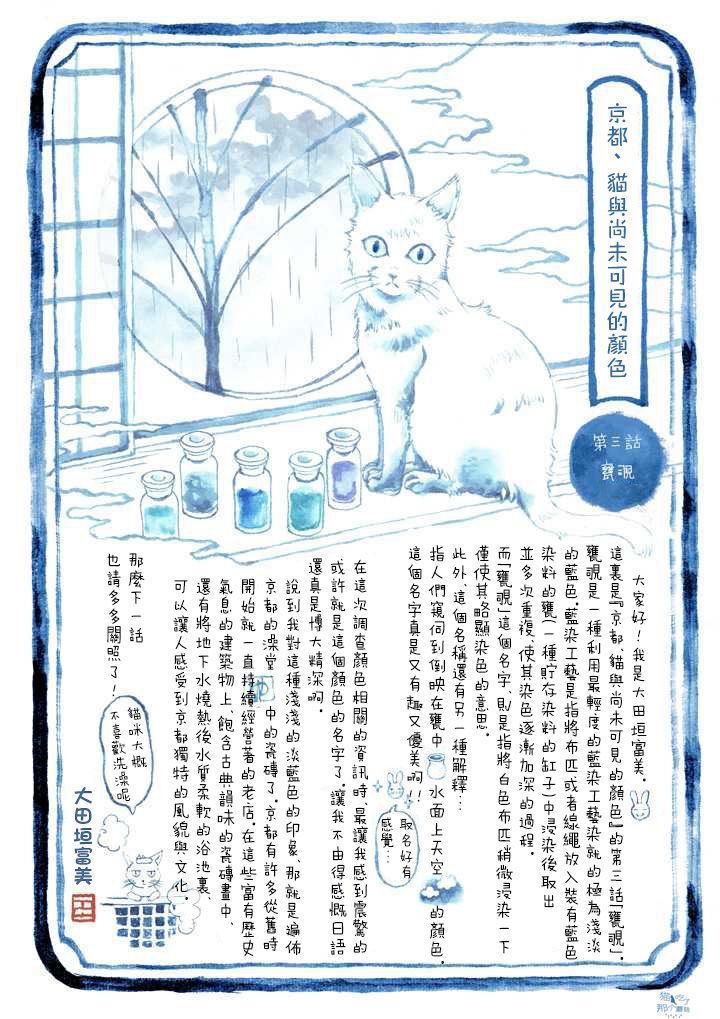 京都、貓與尚未可見的顏色
第三話
甕覗
大家好！我是大田垣富美。
這裏是『京都、貓與尚未可見的顏色』的第三話「甕覗」。
甕覗是一種利用最輕度的藍染工藝染就的極為淺淡
的藍色。藍染工藝是指將布匹或者線繩放入裝有藍色
染料的甕(一種貯存染料的缸子)中浸染後取出
並多次重複、使其染色逐漸加深的過程。
而「甕覗」這個名字、則是指將白色布匹稍微浸染一下
僅使其略顯染色的意思。
此外、這個名稱還有另一種解釋…
指人們窺伺到倒映在甕中水面上天空的顏色。
這個名字真是又有趣又優美啊!!
取名好有
感覺…
在這次調查顏色相關的資訊時最讓我感到震驚的
或許就是這個顏色的名字了。讓我不由得感慨日語
還真是博大精深啊。
說到我對這種淺淺的淡藍色的印象、那就是遍佈
京都的澡堂中的瓷磚了。京都有許多從舊時
開始就一直持續經營著的老店。在這些富有歷史
氣息的建築物上、飽含古典韻味的瓷磚畫中、
還有將地下水燒熱後水質柔軟的浴池裏、
可以讓人感受到京都獨特的風貌與文化。
那麼下一話
也請多多關照了！
貓咪大概
不喜歡洗澡呢
大田垣富美